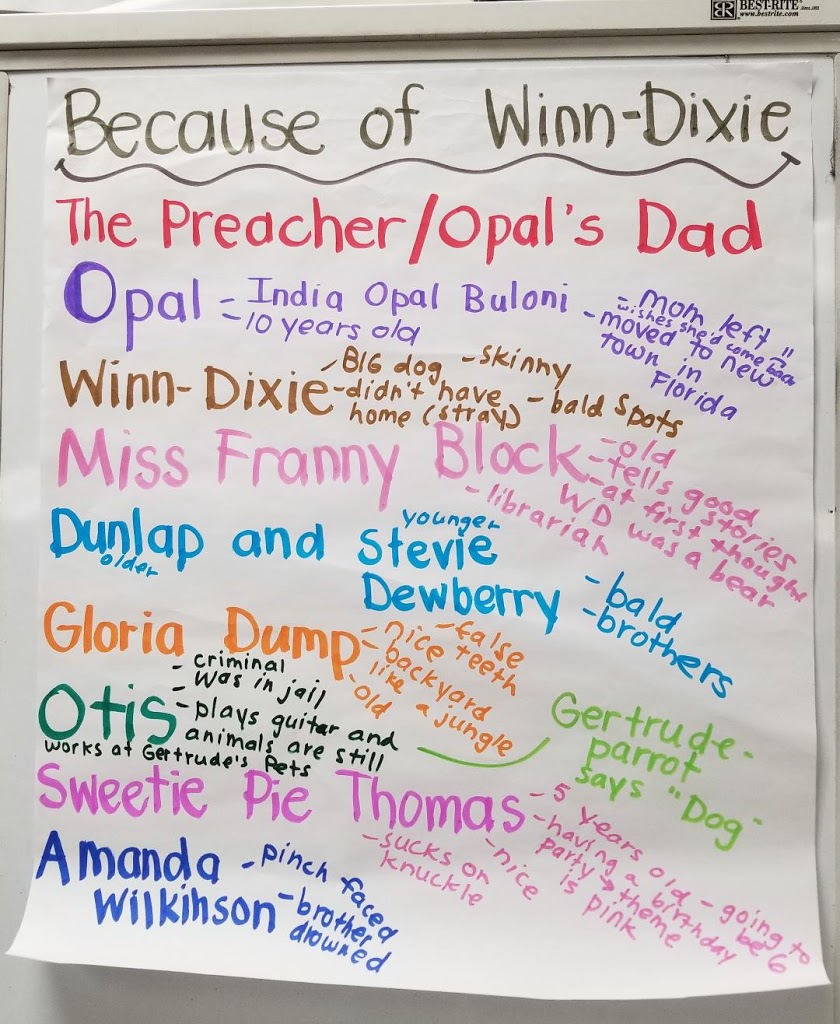 BEST-RITE
www.bestrite.com
Because of Winn-Dixie
The Preacher/Opal's Dad
Opal - India Opal Buloni
- 10 years old
- mom left
wishes she'd come back
- moved to new
town in
Florida
Winn-Dixie - BIG dog - skinny
- didn't have
home (stray)
- bald spots
Miss Franny Block - old
- tells good
stories
- at first thought
WD was a bear
- librarian
Dunlap and Stevie
older
younger
Dewberry - bald
- brothers
Gloria Dump - false
teeth
- nice
- backyard
like a jungle
- old
Otis - criminal
- was in jail
- plays guitar and
animals are still
works at Gertrude's Pets
Gertrude-
parrot
says "Dog"
Sweetie Pie Thomas - 5 years old - going to
be 6
- having a birthday
party → theme
is pink
- nice
- sucks on
knuckle
Amanda - pinch faced
Wilkinson - brother
drowned